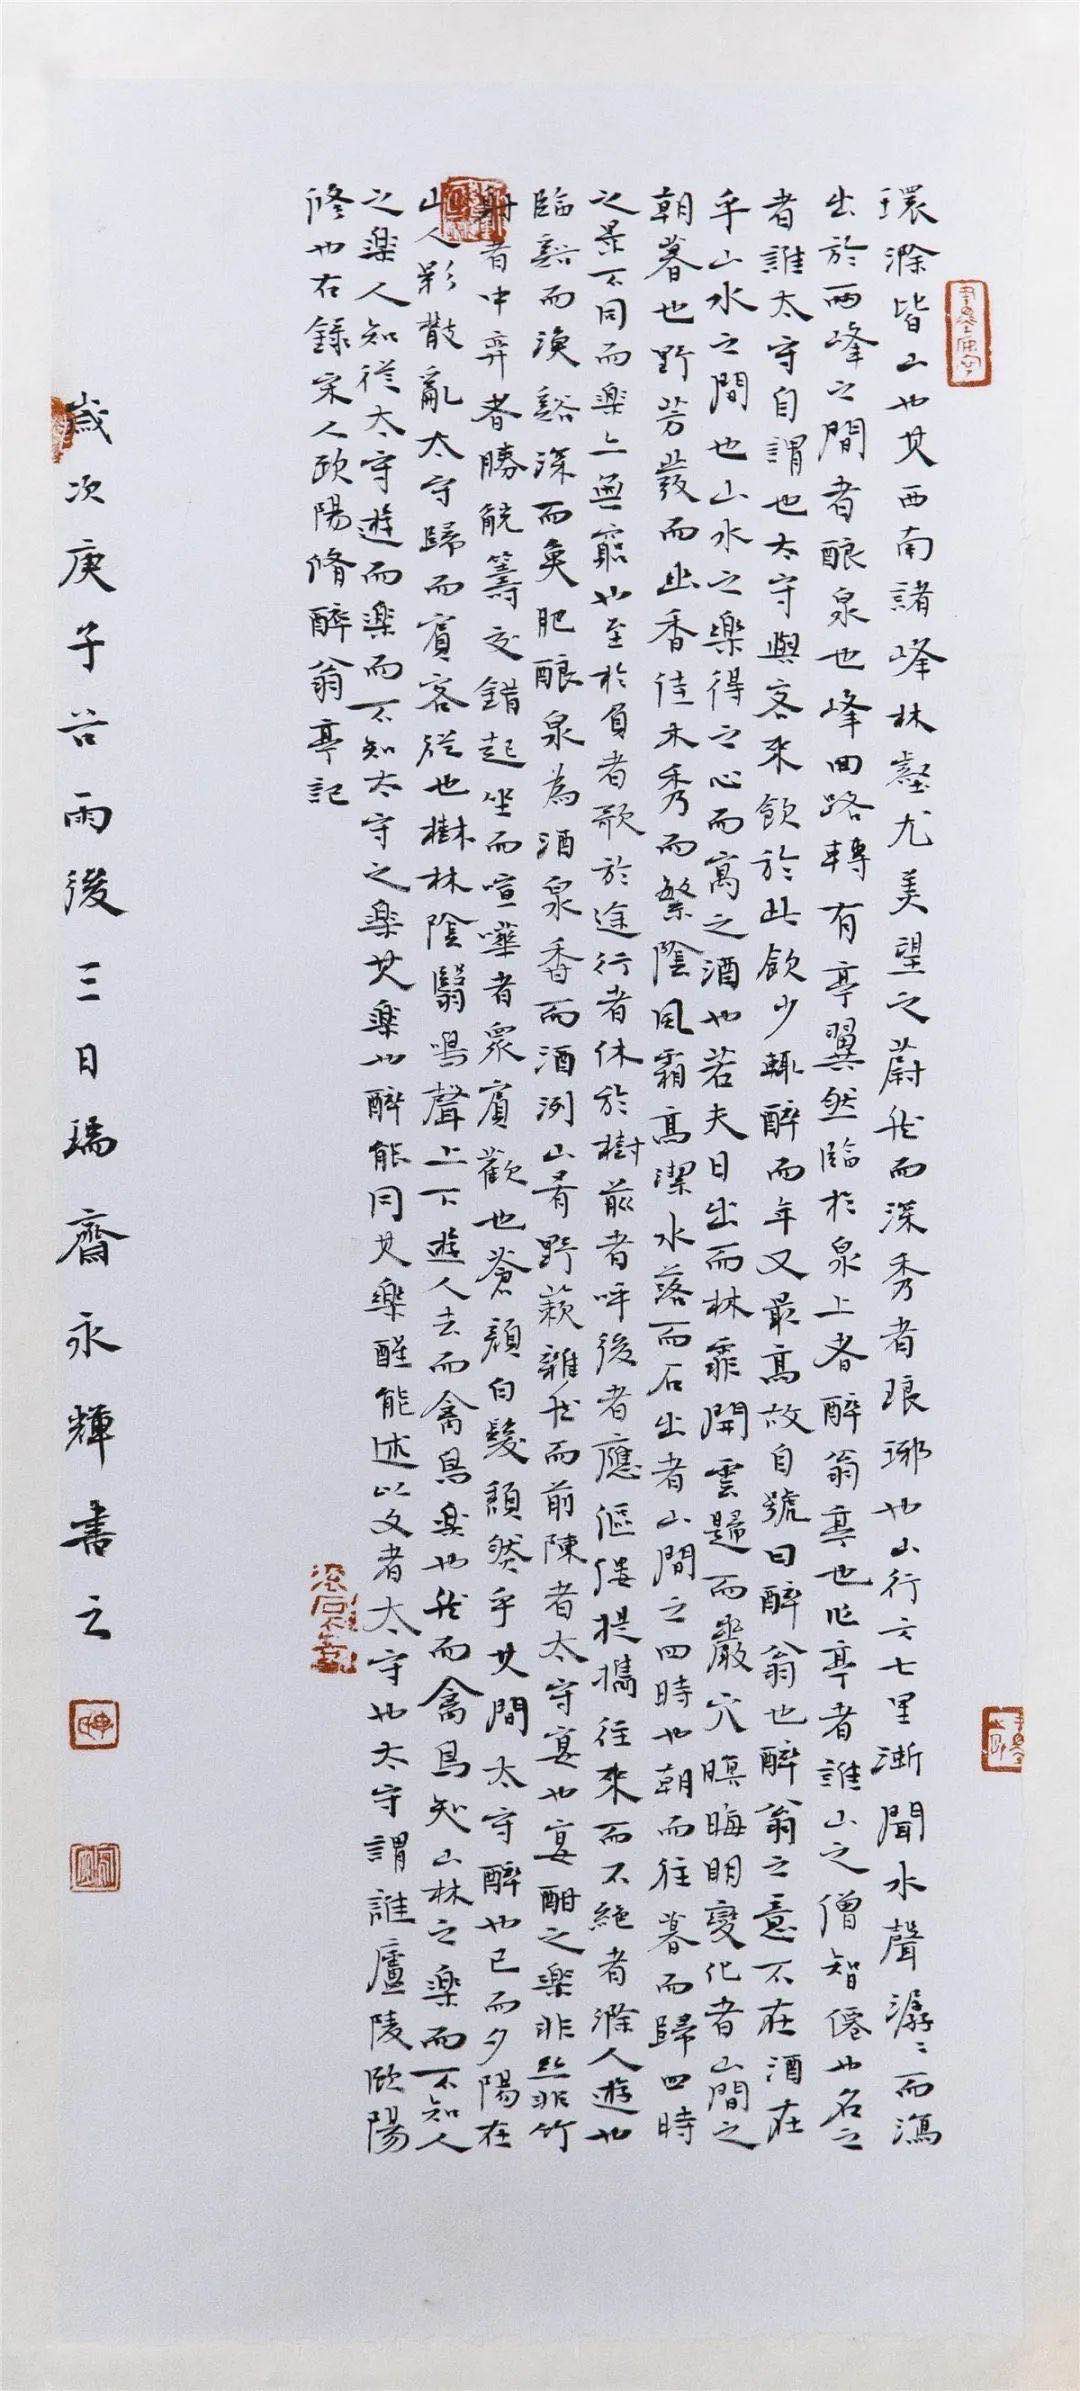 環滁皆山也其西南諸峰林壑尤美望之蔚然而深秀者琅琊也山行六七里漸聞水聲潺〻而瀉
出於兩峰之間者釀泉也峰回路轉有亭翼然臨於泉上者醉翁亭也作亭者誰山之僧智僊也名之
者誰太守自謂也太守與客來飲於此飲少輒醉而年又最高故自號曰醉翁也醉翁之意不在酒在
乎山水之間也山水之樂得之心而寓之酒也若夫日出而林霏開雲歸而巖穴暝晦明變化者山間之
朝暮也野芳發而幽香佳木秀而繁陰風霜高潔水落而石出者山間之四時也朝而往暮而歸四時
之景不同而樂亦無窮也至於負者歌於途行者休於樹前者呼後者應傴僂提攜往來而不絕者滁人遊也
臨谿而漁谿深而魚肥釀泉為酒泉香而酒洌山肴野蔌雜然而前陳者太守宴也宴酣之樂非絲非竹
射者中弈者勝觥籌交錯起坐而喧嘩者眾賓歡也蒼顏白髮頹然乎其間太守醉也已而夕陽在
山人影散亂太守歸而賓客從也樹林陰翳鳴聲上下遊人去而禽鳥樂也然而禽鳥知山林之樂而不知人
之樂人知從太守遊而樂而不知太守之樂其樂也醉能同其樂醒能述以文者太守也太守謂誰廬陵歐陽
修也右錄宋人歐陽脩醉翁亭記
歲次庚子谷雨後三日瑞齋永輝書之